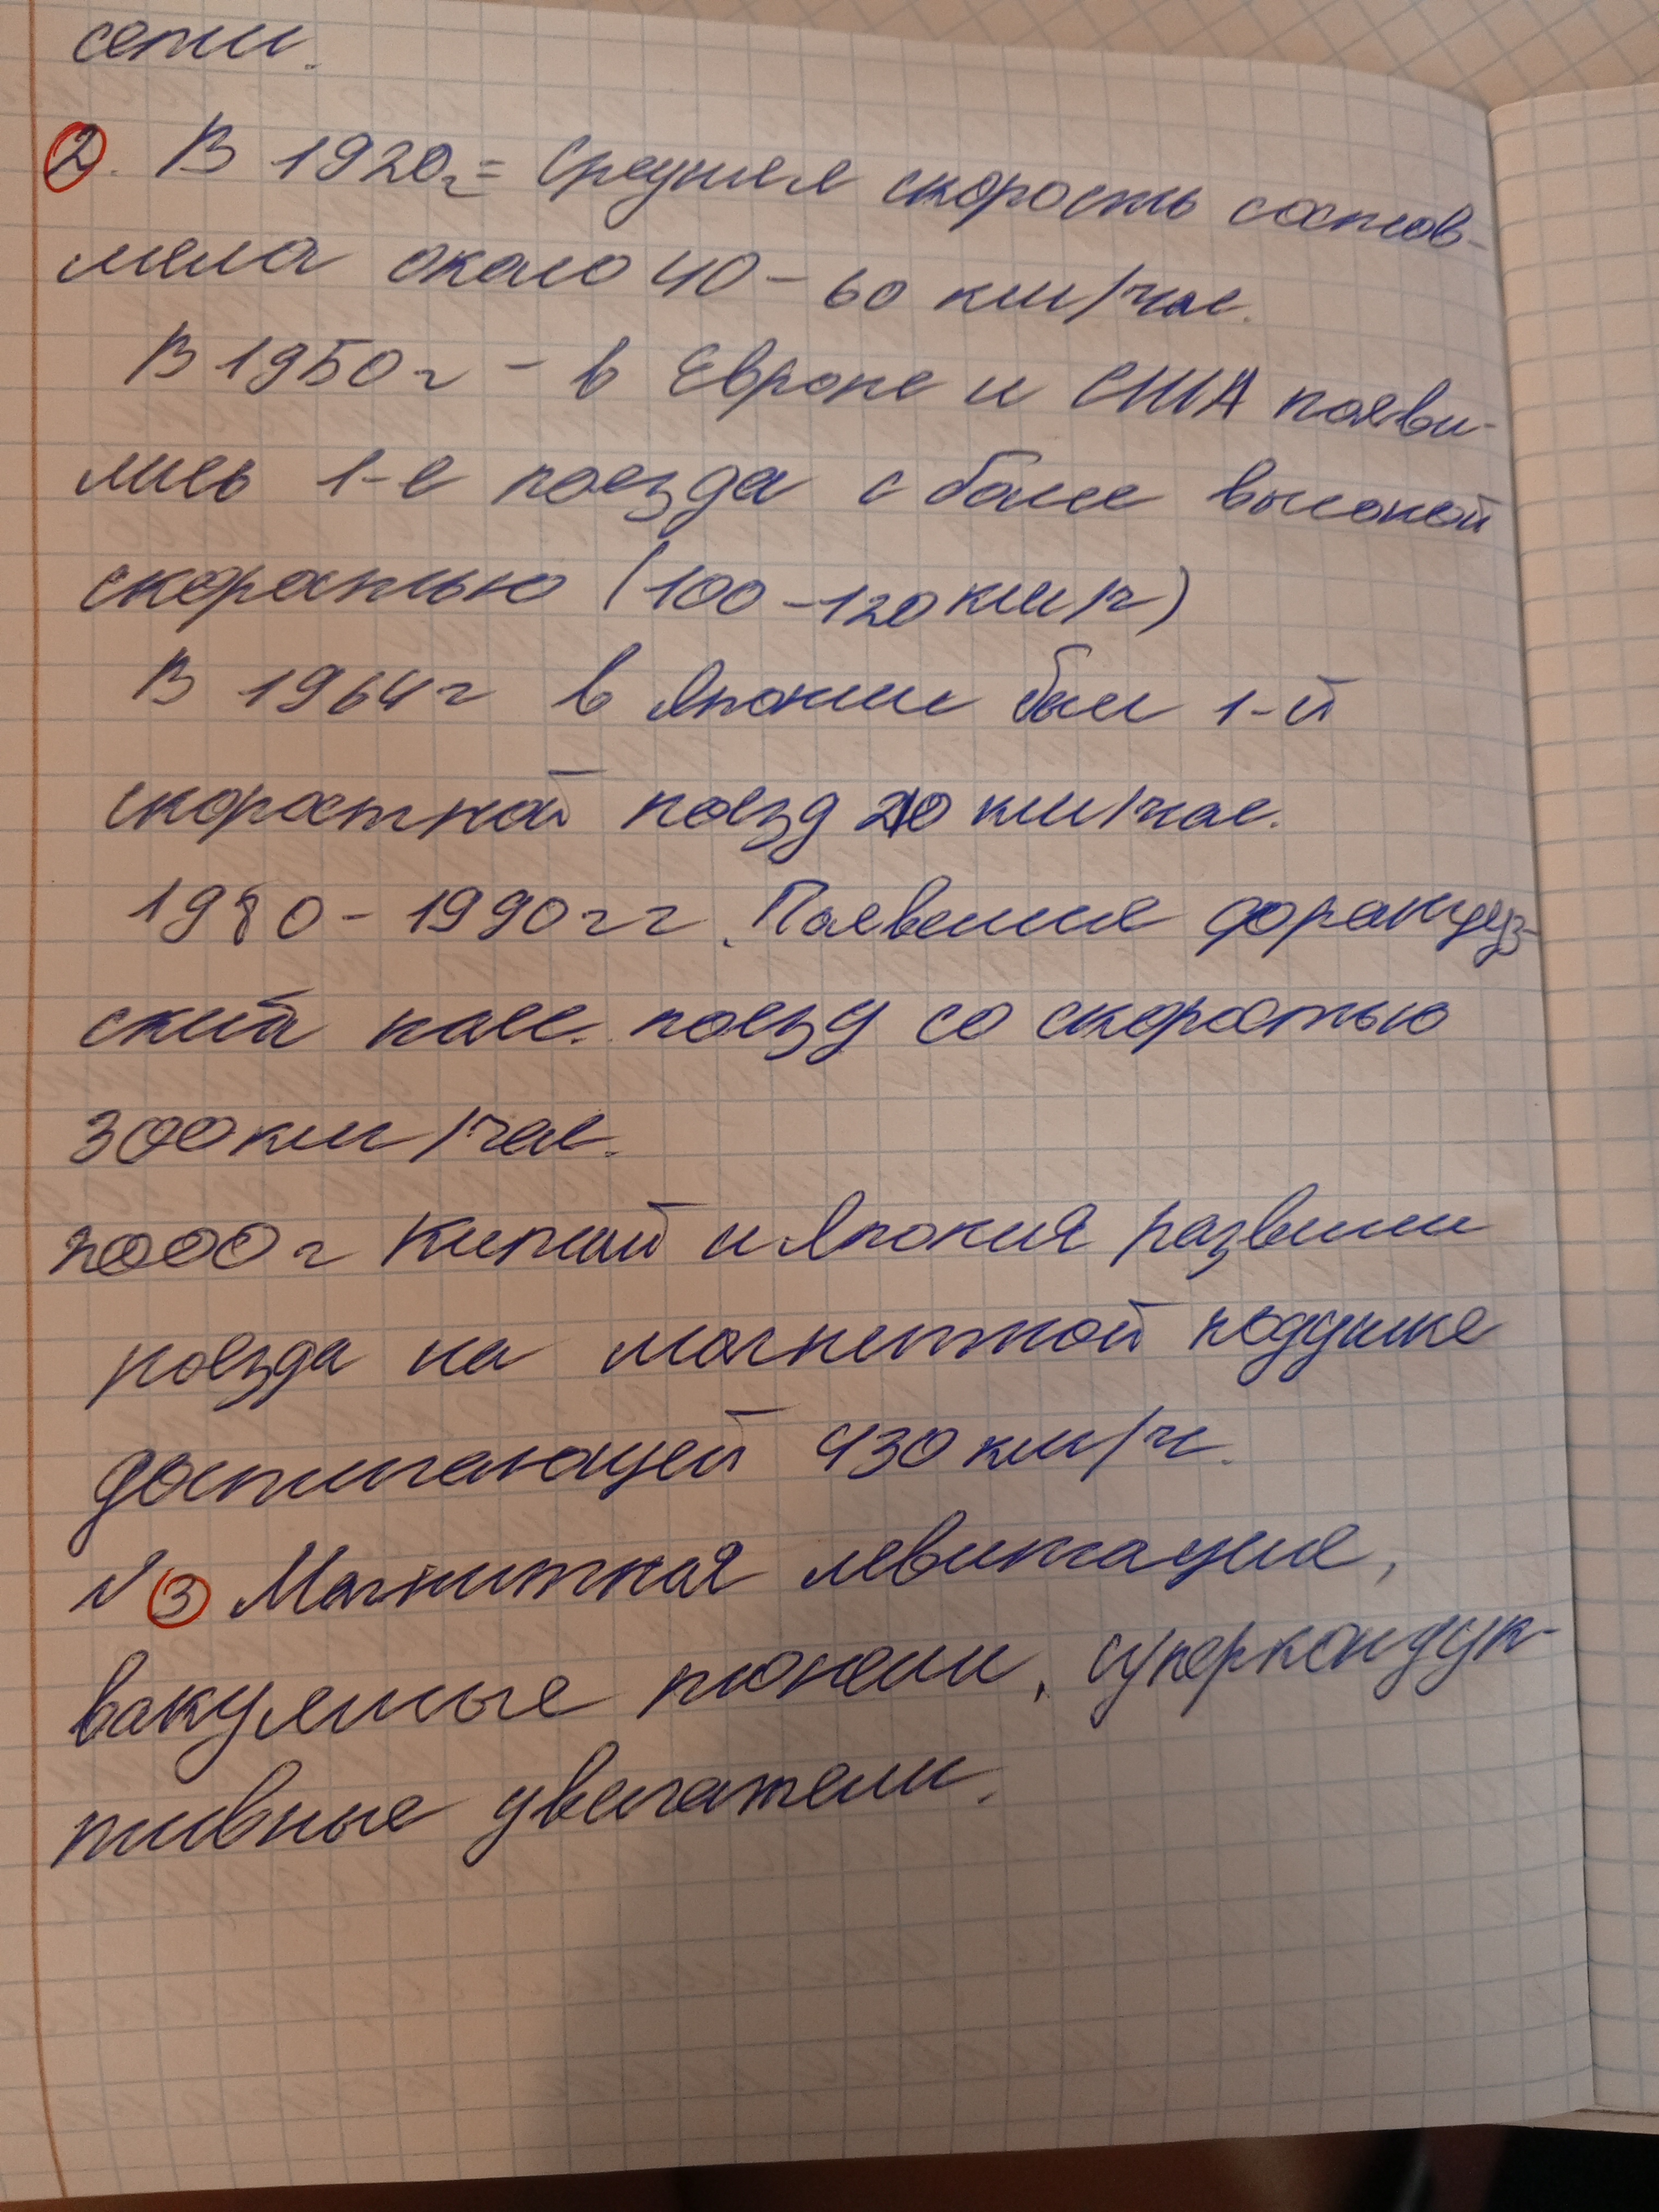 сети.
2. В 1920г = Средняя скорость состов-
ляла около 40-60 км/час.
В 1950г - в Европе и США появи-
лись 1-е поезда с более высокой
скоростью (100-120 км/ч)
В 1964г в Японии был 1-й
скоростной поезд 210 км/час.
1980-1990гг. Появление француз-
ский пасс. поезд со скоростью
300 км/час.
2000г Китай и Япония развили
поезда на магнетной подушке
достигающей 430 км/ч.
№3 Магнитная левитация,
вакуумные тонели, суперкондук-
тивные двигатели.